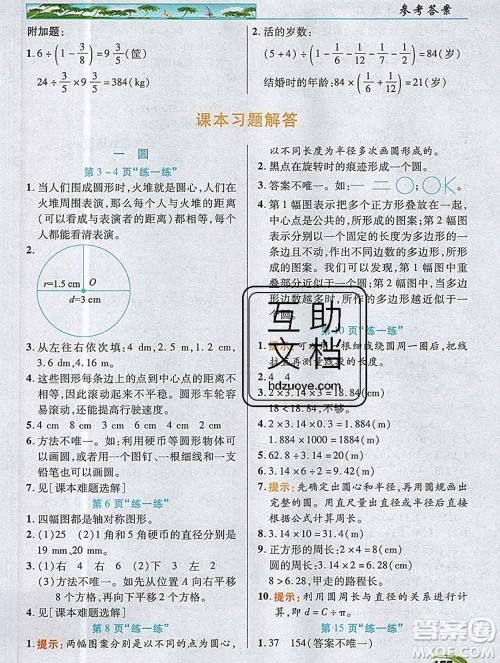 参考答案
附加题:
1. 6÷(1-3/8)=9 3/5(筐)
24÷3/5×9 3/5=384(kg)
2. 活的岁数:
(5+4)÷(1-1/6-1/12-1/7-1/2)=84(岁)
结婚时的年龄:84×(1/6+1/12+1/7)=33(岁)
课本习题解答
一 圆
第3~4页“练一练”
1. 当人们围成圆形时,火堆就是圆心,人们在
火堆周围表演,那么,每个人与火堆的距离
(可以看成与表演者的距离)都相等,人们
能看清表演。
2.
r=1.5 cm
O
d=3 cm
3. 从左往右依次填:4 dm,2.5 m,2.15 m,
3.2 m,4.6 m
4. 因为这些图形每条边上的点到中心点的距离不
相等,因此滚动起来不平稳。圆形车轮容
易滚动,因此能提高行驶速度。
5. 方法不唯一。如利用硬币等圆形物体画
圆,或者用一个图钉、一根细线和一支
铅笔也可以画圆。
7. 见[课本难题选解]
第6页“练一练”
1. 四幅图都是轴对称图形。
2. (1)25 (2)1角和5角硬币的直径分别是
19 mm,20 mm。
3. (1)右 4 (2)先向右平移
8个方格,再向下平移6个方格
4. 见[课本难题选解]
第8页“练一练”
1. 提示:两幅图案分别是以不同的点为圆心,
以不同长度为半径多次画圆形成的。
2. 黑点在旋转时的痕迹形成一个圆。
3. 答案不唯一。如:
4. 第1幅图表示把多个正方形叠放在一起,
中心点是公共的,所形成的图案;第2幅图
表示以一个固定的长度为多边形的边长所
形成的图案。第1幅图中重叠的次数越
多,形成的图形越近似于圆,第2幅图中当
多边形边数越多时,所形成的图形越近似于
一个圆。
第10页“练一练”
1. 提示:可以用一根细线绕圆周一圈,
再测量线的长度。
2. 4 4
3. 2×3.14×3=18.84(m)
18<18.84,不够。
4. 2×3.14×0.3=1.884(m)
5. 62.8÷3.14=20(m)
6. 3.14×6×10=188.4(m)
7. 提示:先确定出圆心和半径,再用圆规画出
完整的圆。用直尺量出直径的长度,再计算
周长。
8. 见[课本难题选解]
9. 正方形的周长:2×4=8(m)
圆的周长:2×3.14=6.28(m)
8>6.28,甲走的路程长。
10. 提示:利用圆周长与直径的关系进行计
算,d=C÷π。
第15页“练一练”
1. 37 154(答案不唯一)
互助
文档
hdzuoye.com
答案圈